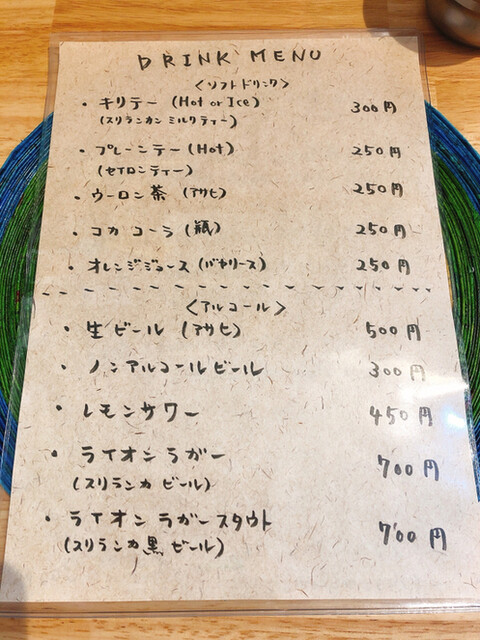 DRINK MENU
<ソフトドリンク>
・キリテー (Hot or Ice) 300円
(スリランカン ミルクティー)
・プレーンテー (Hot) 250円
(セイロンティー)
・ウーロン茶 (アサヒ) 250円
・コカコーラ (瓶) 250円
・オレンジジュース (バヤリース) 250円
<アルコール>
・生ビール (アサヒ) 500円
・ノンアルコールビール 300円
・レモンサワー 450円
・ライオンラガー 700円
(スリランカ ビール)
・ライオンラガースタウト 700円
(スリランカ黒ビール)